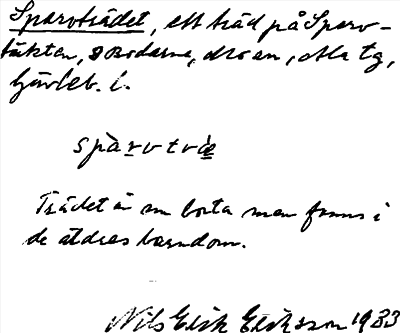 Sparvträdet, ett träd på Sparv-
täkten,
Gävleb. l.
sparvtræ
Trädet är nu borta men fanns i
de äldres barndom.
Nils Erik Eriksson 1933